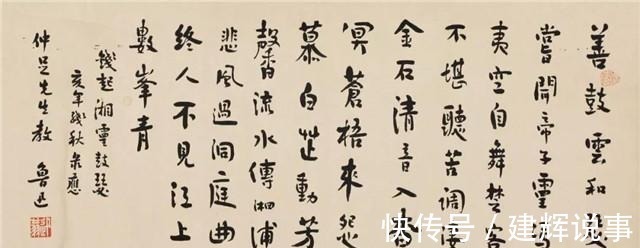 善鼓雲和
嘗聞帝子靈
夷空自舞楚客
不堪聽苦調淒
金石清音入
冥蒼梧來怨
慕白芷動芳
馨流水傳湘浦
悲風過洞庭曲
終人不見江上
數峯青
錢起湘靈鼓瑟
亥年殘秋录應
仲足先生教 魯迅
快传号/建辉说事